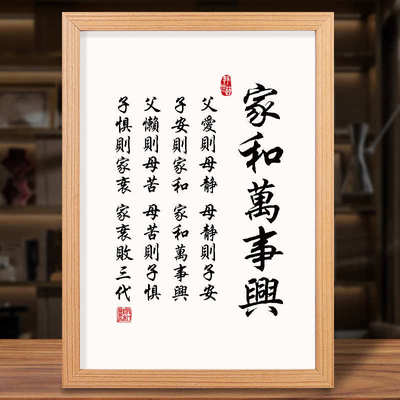 家和萬事興
父愛則母静 母静則子安
子安則家和 家和萬事興
父懶則母苦 母苦則子惧
子惧則家衰 家衰敗三代